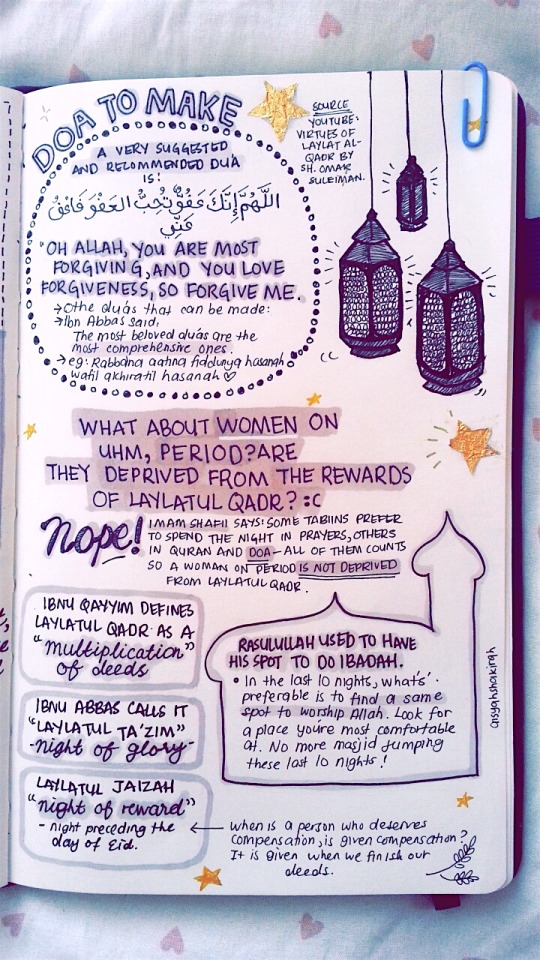 DOA TO MAKE
A VERY SUGGESTED
AND RECOMMENDED DUA
IS:
اللَّهُمَّ إِنَّكَ عَفُوٌّ تُحِبُّ العَفْوَ فَاعْفُ
عَنِّي
"OH ALLAH, YOU ARE MOST
FORGIVING, AND YOU LOVE
FORGIVENESS, SO FORGIVE ME.
→ Othe duás that can be made:
→ Ibn Abbas said,
The most beloved duás are the
most comprehensive ones.
→ eg: Rabbana aatina fiddunya hasanah
wafil akhiratil hasanah ♡
SOURCE
YOUTUBE:
VIRTUES OF
LAYLAT AL-
QADR BY
SH. OMAR
SULEIMAN.
WHAT ABOUT WOMEN ON
UHM, PERIOD? ARE
THEY DEPRIVED FROM THE REWARDS
OF LAYLATUL QADR? :C
Nope!
IMAM SHAFII SAYS: SOME TABIINS PREFER
TO SPEND THE NIGHT IN PRAYERS, OTHERS
IN QURAN AND DOA - ALL OF THEM COUNTS
SO A WOMAN ON PERIOD IS NOT DEPRIVED
FROM LAYLATUL QADR.
IBNU QAYYIM DEFINES
LAYLATUL QADR AS A
"multiplication"
of deeds
IBNU ABBAS CALLS IT
"LAYLATUL TA'ZIM"
-night of glory-
LAYLATUL JAIZAH
"night of reward"
- night preceding the
day of Eid.
RASULULLAH USED TO HAVE
HIS SPOT TO DO IBADAH.
• In the last 10 nights, what's'
preferable is to find a same
spot to worship Allah. Look for
a place you're most comfortable
at. No more masjid jumping
these last 10 nights!
← when is a person who deserves
compensation, is given compensation?
It is given when we finish our
deeds.
aisyahshakirah